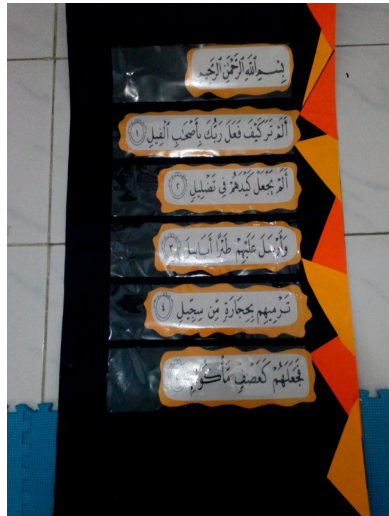 بِسْمِ اللَّهِ الرَّحْمَٰنِ الرَّحِيمِ
أَلَمْ تَرَ كَيْفَ فَعَلَ رَبُّكَ بِأَصْحَٰبِ الْفِيلِ ١
أَلَمْ يَجْعَلْ كَيْدَهُمْ فِي تَضْلِيلٍ ٢
وَأَرْسَلَ عَلَيْهِمْ طَيْرًا أَبَابِيلَ ٣
تَرْمِيهِم بِحِجَارَةٍ مِّن سِجِّيلٍ ٤
فَجَعَلَهُمْ كَعَصْفٍ مَّأْكُولٍ